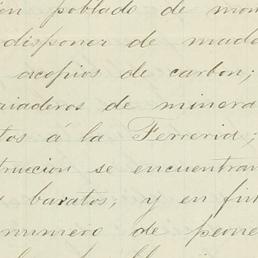 ien poblado de mon
disponer de made
acopios de carbon;
riaderos de minera
tos á la Ferreria;
truccion se encuentran
baratos; y en fin
numero de peone